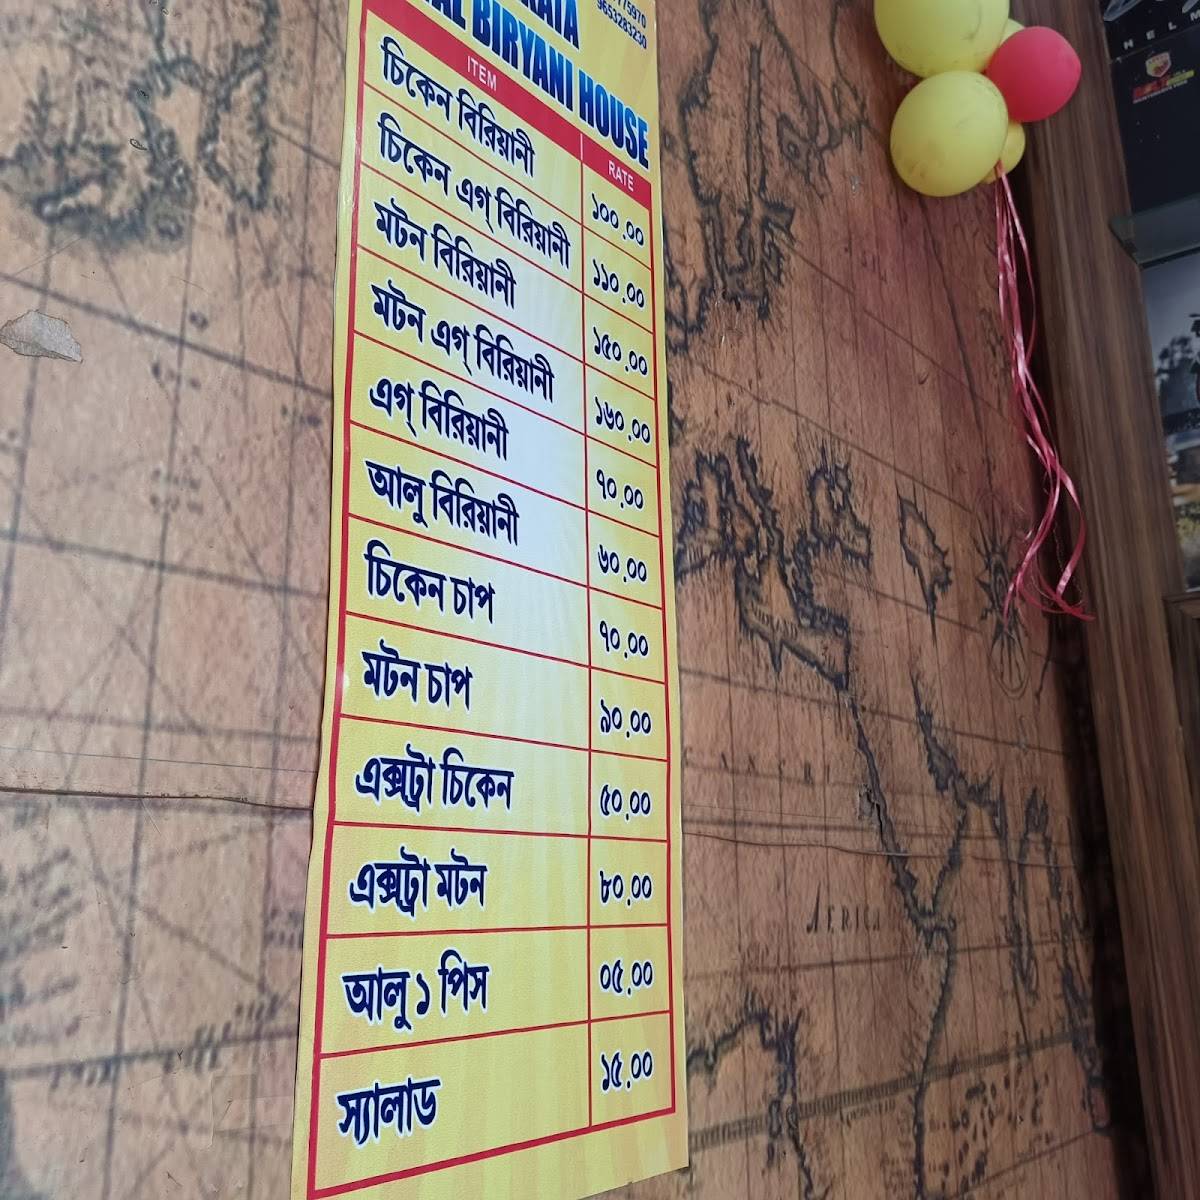 9653283230
BIRYANI HOUSE
ITEM RATE
চিকেন বিরিয়ানী ১০০.০০
চিকেন এগ্ বিরিয়ানী ১১০.০০
মটন বিরিয়ানী ১৫০.০০
মটন এগ্ বিরিয়ানী ১৬০.০০
এগ্ বিরিয়ানী ৭০.০০
আলু বিরিয়ানী ৬০.০০
চিকেন চাপ ৭০.০০
মটন চাপ ৯০.০০
এক্সট্রা চিকেন ৫০.০০
এক্সট্রা মটন ৮০.০০
আলু ১ পিস ০৫.০০
স্যালাড ১৫.০০
AFRICA